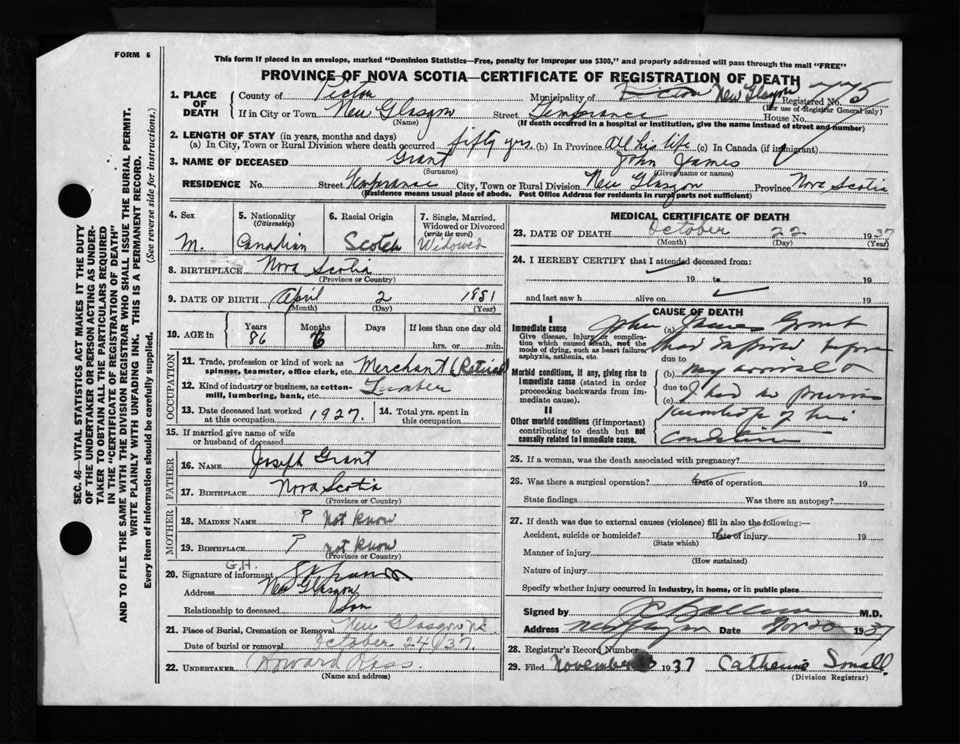 FORM 6
This form if placed in an envelope, marked "Dominion Statistics—Free, penalty for improper use $300," and properly addressed will pass through the mail "FREE"
PROVINCE OF NOVA SCOTIA—CERTIFICATE OF REGISTRATION OF DEATH
1. PLACE OF DEATH County of Pictou Municipality of Pictou New Glasgow Registered No. 775
(For use of Registrar General only)
If in City or Town New Glasgow Street Temperance House No.
(Name) (If death occurred in a hospital or institution, give the name instead of street and number)
2. LENGTH OF STAY (in years, months and days)
(a) In City, Town or Rural Division where death occurred fifty yrs. (b) In Province All his life (c) In Canada (if immigrant)
3. NAME OF DECEASED Grant John James
(Surname) (Given name or names)
RESIDENCE No. Street Temperance City, Town or Rural Division New Glasgow Province Nova Scotia
(Residence means usual place of abode. Post Office Address for residents in rural parts not sufficient)
4. Sex M.
5. Nationality (Citizenship) Canadian
6. Racial Origin Scotch
7. Single, Married, Widowed or Divorced (write the word) Widowed
8. BIRTHPLACE Nova Scotia
(Province or Country)
9. DATE OF BIRTH April 2 1851
(Month) (Day) (Year)
10. AGE in Years 86 Months 6 Days If less than one day old hrs. or min.
OCCUPATION
11. Trade, profession or kind of work as spinner, teamster, office clerk, etc. Merchant (Retired)
12. Kind of industry or business, as cotton-mill, lumbering, bank, etc. Lumber
13. Date deceased last worked at this occupation 1927.
14. Total yrs. spent in this occupation
15. If married give name of wife or husband of deceased
FATHER
16. NAME Joseph Grant
17. BIRTHPLACE Nova Scotia
(Province or Country)
MOTHER
18. MAIDEN NAME ? not know
19. BIRTHPLACE ? not know
(Province or Country)
20. Signature of informant G.H.
Address New Glasgow
Relationship to deceased Son
21. Place of Burial, Cremation or Removal New Glasgow N.S.
Date of burial or removal October 24/37.
22. UNDERTAKER Howard Ross.
(Name and address)
MEDICAL CERTIFICATE OF DEATH
23. DATE OF DEATH October 22 1937
(Month) (Day) (Year)
24. I HEREBY CERTIFY that I attended deceased from:
19 to 19
and last saw h alive on 19
CAUSE OF DEATH
I
Immediate cause
Give disease, injury or complication which caused death, not the mode of dying, such as heart failure, asphyxia, asthenia, etc.
(a) John James Grant
had expired before
due to
Morbid conditions, if any, giving rise to immediate cause (stated in order proceeding backwards from immediate cause).
(b) my arrival &
due to I had no previous
(c)
II
Other morbid conditions (if important) contributing to death but not causally related to immediate cause.
knowledge of his
condition
25. If a woman, was the death associated with pregnancy?
26. Was there a surgical operation? Date of operation 19
State findings Was there an autopsy?
27. If death was due to external causes (violence) fill in also the following:—
Accident, suicide or homicide? Date of injury 19
(State which)
Manner of injury
(How sustained)
Nature of injury
Specify whether injury occurred in industry, in home, or in public place
Signed by M.D.
Address New Glasgow Date Nov 1937
28. Registrar's Record Number
29. Filed November 1937 Catherine Small
(Division Registrar)
SEC. 46—VITAL STATISTICS ACT MAKES IT THE DUTY
OF THE UNDERTAKER OR PERSON ACTING AS UNDER-
TAKER TO OBTAIN ALL THE PARTICULARS REQUIRED
IN THE "CERTIFICATE OF REGISTRATION OF DEATH"
AND TO FILE THE SAME WITH THE DIVISION REGISTRAR WHO SHALL ISSUE THE BURIAL PERMIT.
WRITE PLAINLY WITH UNFADING INK. THIS IS A PERMANENT RECORD.
Every item of information should be carefully supplied. (See reverse side for instructions.)